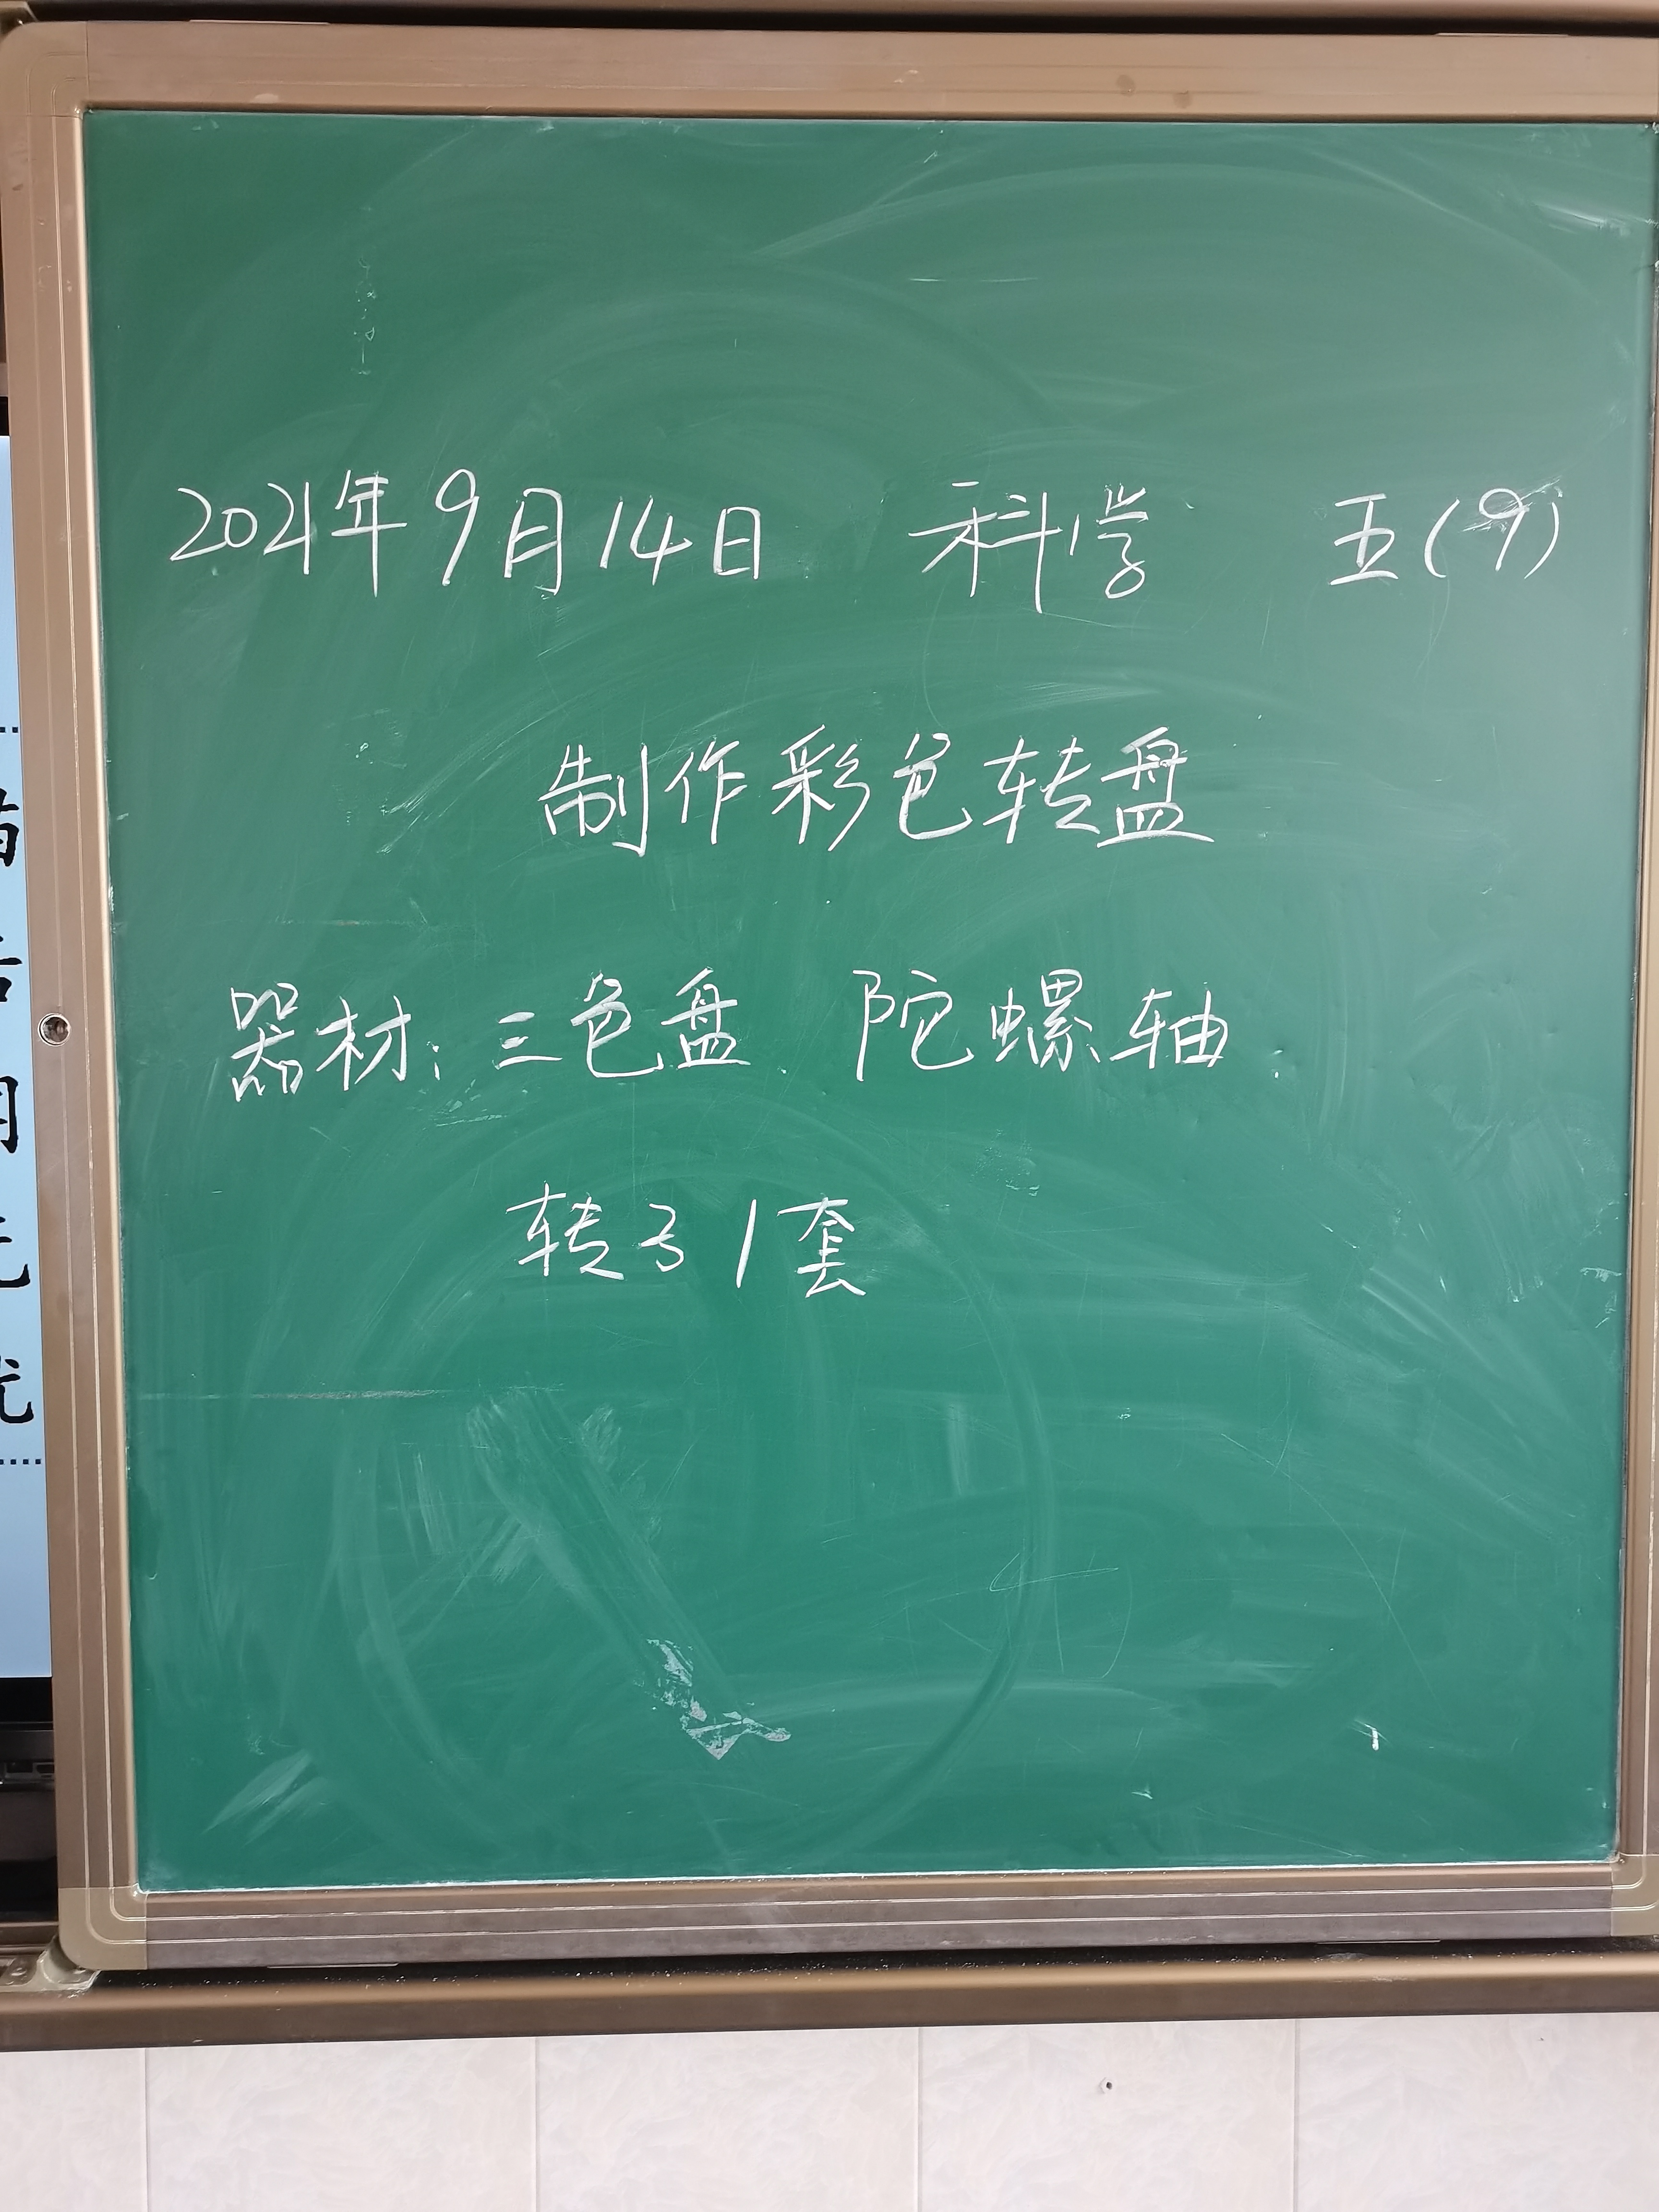 2021年9月14日 科学 五(9)
制作彩色转盘
器材：三色盘 陀螺轴
转子1套